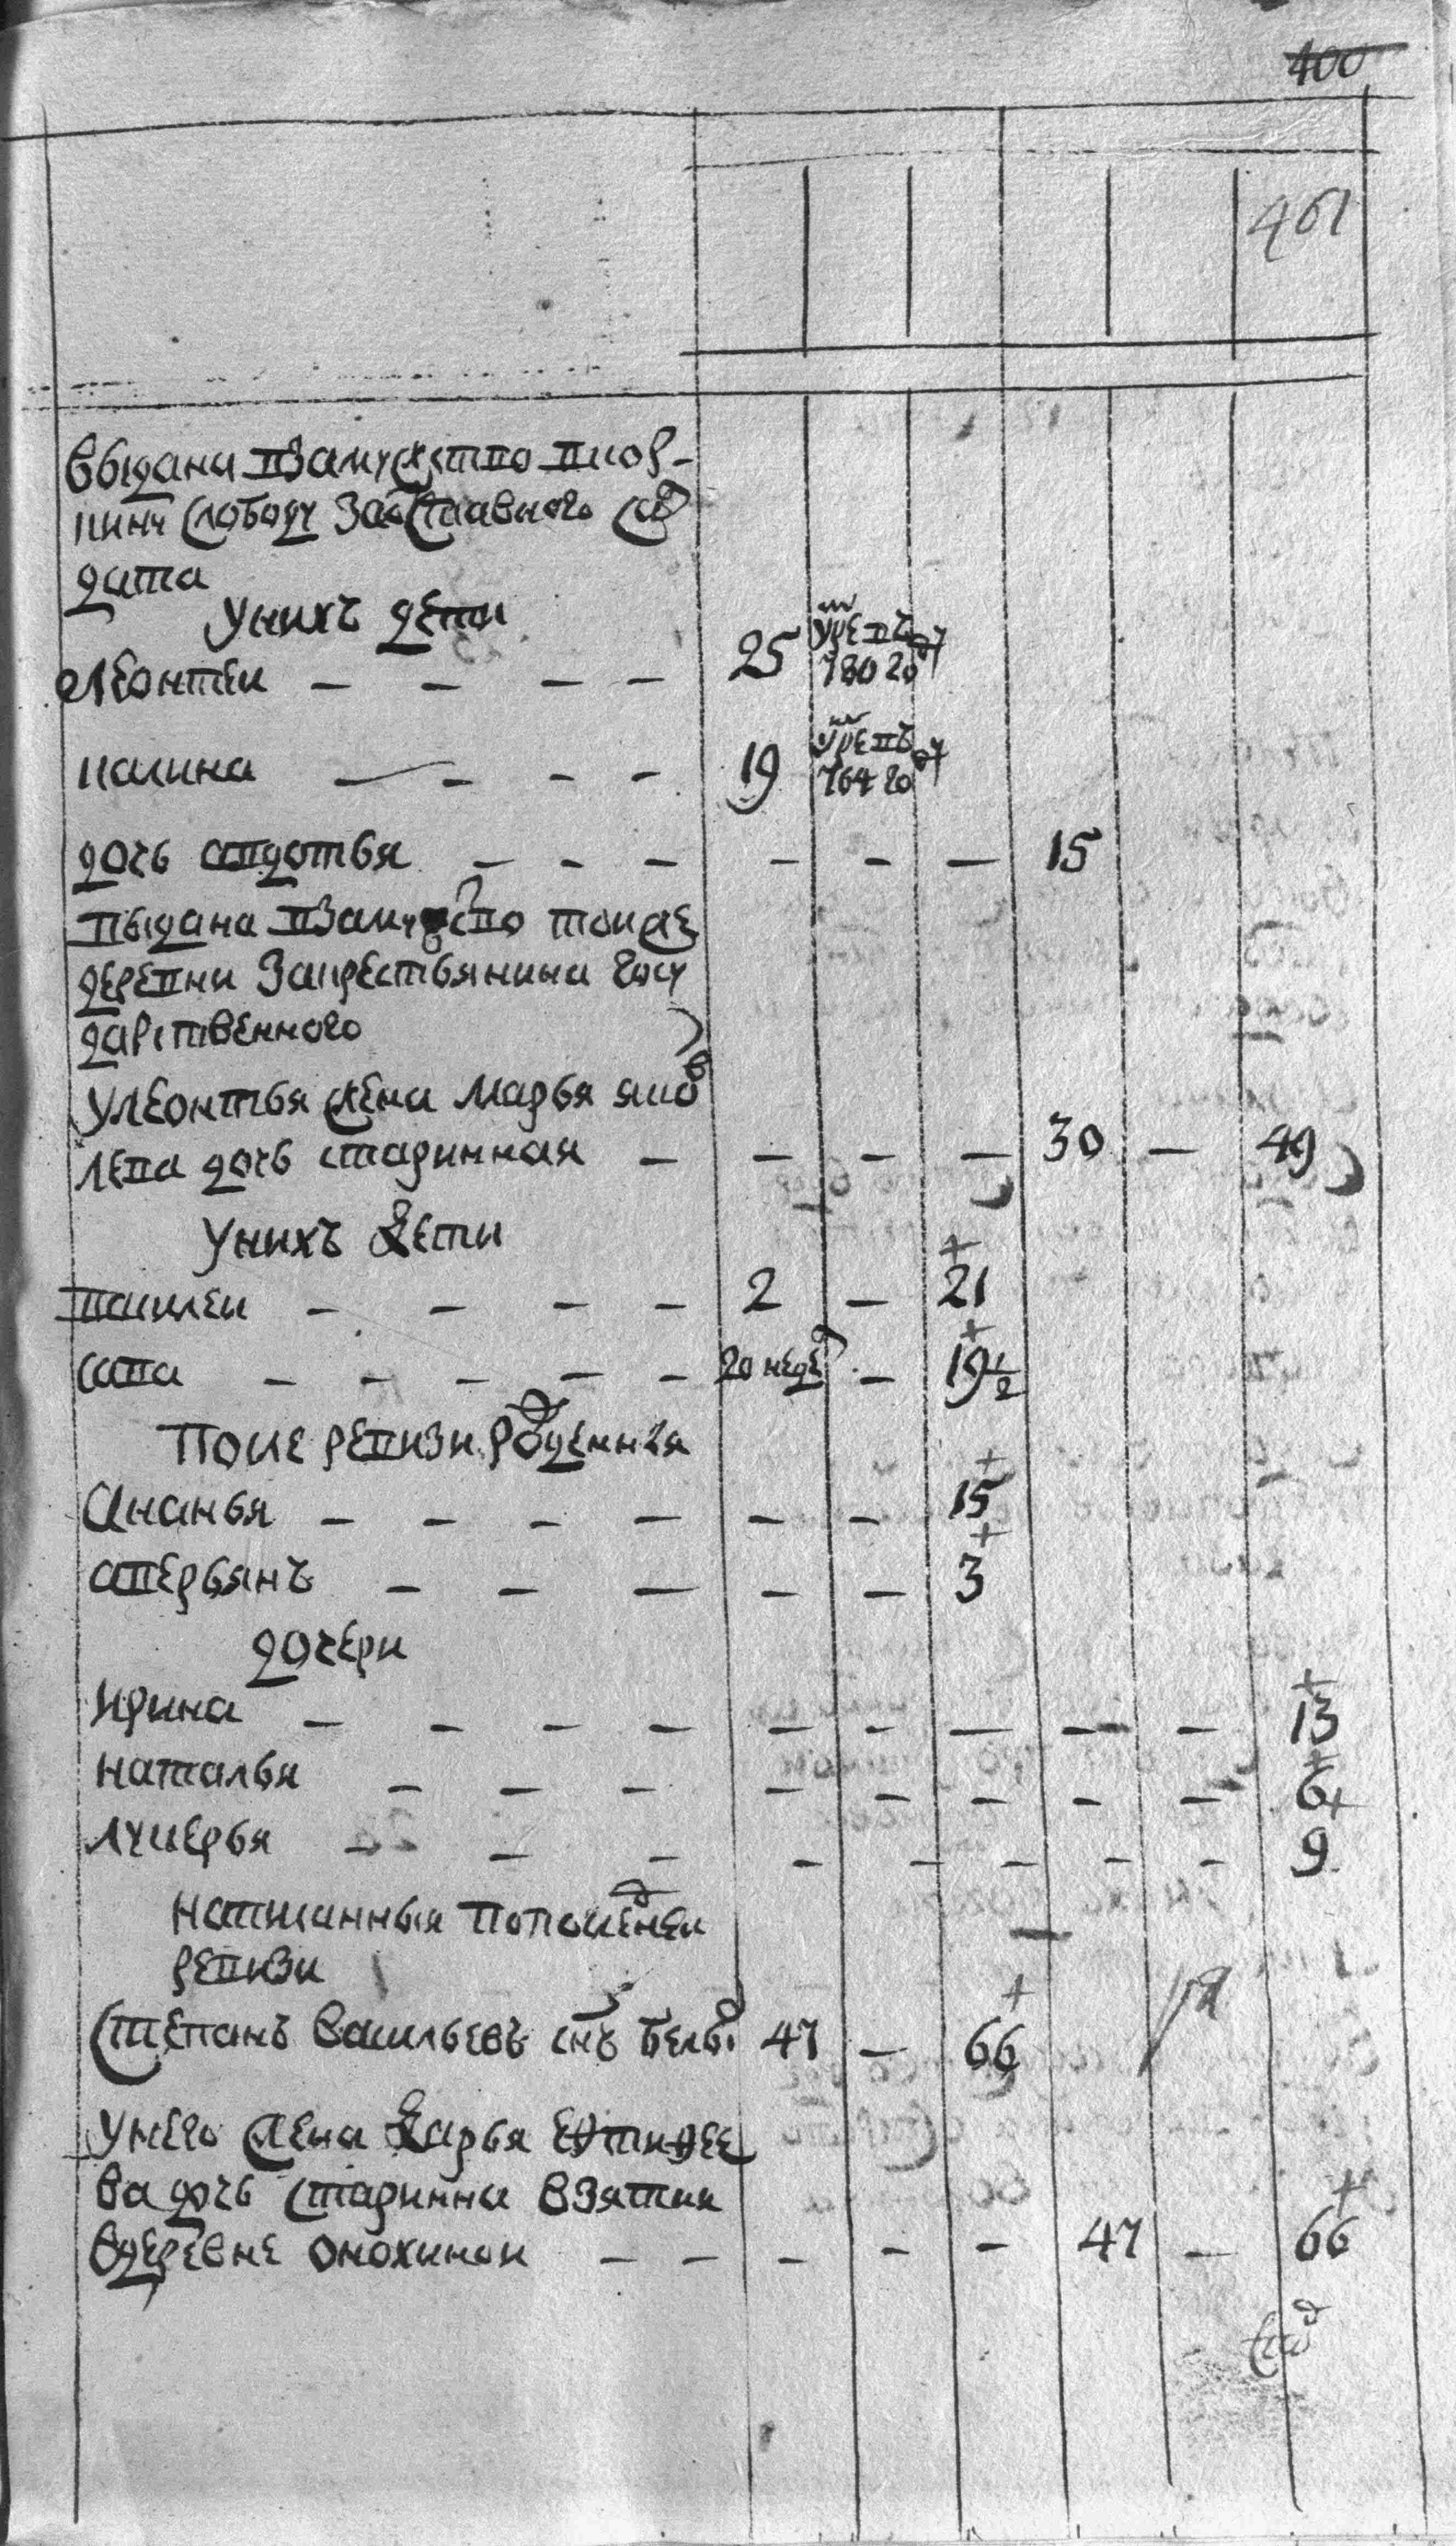 400
461
выдана взамужство вков-
кину слободу заотставного сол
дата
Унихъ дети
Леонтеи — — — — 25 умре въ 780 году
никита — — — — 19 умре въ 764 году
дочь авдотья — — — — — — 15
выдана взамужство тоиже
деревни закрестьянина госу
дарственного
Улеонтья жена марья яков
лева дочь старинная — — — — 30 — 49
Унихъ дети
василеи — — — — 2 — 21
сава — — — — — 20 недел — 19 1/2
После ревизи рожденныя
Ананья — — — — — — 15
аверьянъ — — — — — 3
дочери
Ирина — — — — — — — — — 13
наталья — — — — — — — — 6
лукерья — — — — — — — — 9
написанныя попоследнеи
ревизи
Степанъ васильевъ снъ 47 — 66
Унего жена дарья
ва дочь старинна взятая
вдеревне онохинои — — — — — 47 — 66